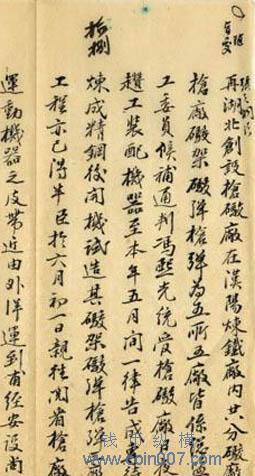 再湖北創設槍礮廠在漢陽煉鐵廠內共分礮
槍廠礮架礮彈槍彈為五所五廠皆係
工委員候補通判馮熙光統受槍礮廠
趲工裝配機器至本年五月間一律告成
拾捌
煉成精鋼後開機試造其礮架礮彈槍彈
工程亦已得半臣於六月初一日親往閱看槍廠
運動機器之皮帶近由外洋運到甫經安設尚
钱币纵横
www.coin007.com